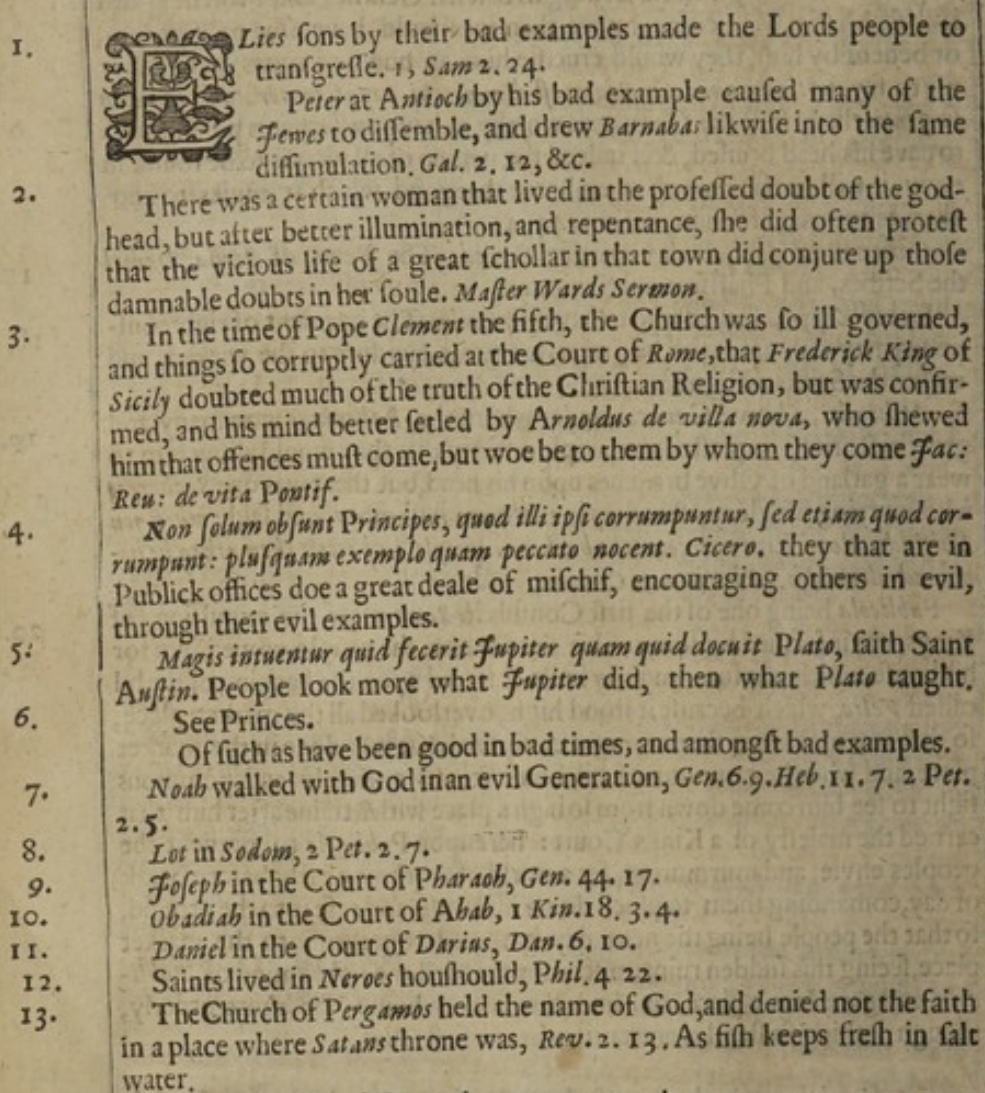 1. ELies ſons by their bad examples made the Lords people to
tranſgreſſe. 1, Sam 2. 24.
Peter at Antioch by his bad example cauſed many of the
Jewes to diſſemble, and drew Barnabas likwiſe into the ſame
diſſimulation. Gal. 2. 12, &c.
2. There was a certain woman that lived in the profeſſed doubt of the god-
head, but after better illumination, and repentance, ſhe did often proteſt
that the vicious life of a great ſchollar in that town did conjure up thoſe
damnable doubts in her ſoule. Maſter Wards Sermon.
3. In the time of Pope Clement the fifth, the Church was ſo ill governed,
and things ſo corruptly carried at the Court of Rome, that Frederick King of
Sicily doubted much of the truth of the Chriſtian Religion, but was confir-
med, and his mind better ſetled by Arnoldus de villa nova, who ſhewed
him that offences muſt come, but woe be to them by whom they come Jac:
Reu: de vita Pontif.
4. Non ſolum obſunt Principes, quod illi ipſi corrumpuntur, ſed etiam quod cor-
rumpunt: pluſquam exemplo quam peccato nocent. Cicero. they that are in
Publick offices doe a great deale of miſchif, encouraging others in evil,
through their evil examples.
5. Magis intuentur quid fecerit Jupiter quam quid docuit Plato, ſaith Saint
Auſtin. People look more what Jupiter did, then what Plato taught.
6. See Princes.
Of ſuch as have been good in bad times, and amongſt bad examples.
7. Noah walked with God in an evil Generation, Gen. 6.9. Heb. 11. 7. 2 Pet.
2. 5.
8. Lot in Sodom, 2 Pet. 2. 7.
9. Joſeph in the Court of Pharaoh, Gen. 44. 17.
10. Obadiah in the Court of Ahab, 1 Kin. 18. 3. 4.
11. Daniel in the Court of Darius, Dan. 6. 10.
12. Saints lived in Neroes houſhould, Phil. 4 22.
13. The Church of Pergamos held the name of God, and denied not the faith
in a place where Satans throne was, Rev. 2. 13. As fiſh keeps freſh in ſalt
water.